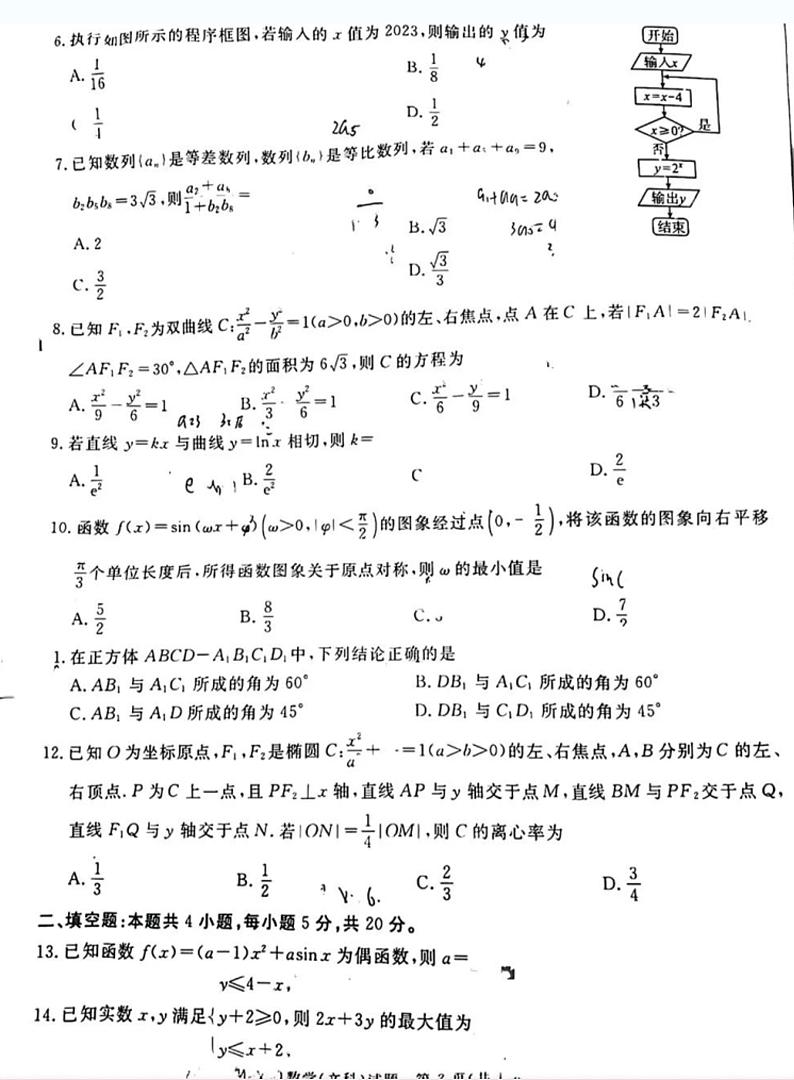 6.执行如图所示的程序框图,若输入的 x 值为 2023,则输出的 y 值为
A. 1/16
B. 1/8
D. 1/2
开始
输入x
x=x-4
x≥0?
是
否
y=2ˣ
输出y
结束
7.已知数列{aₙ}是等差数列,数列{bₙ}是等比数列,若 a₁+a₅+a₉=9,
b₂b₅b₈=3√3,则 =
A. 2
B. √3
C. 3/2
D. √3/3
8.已知 F₁,F₂为双曲线 C:x²/a²-y²/b²=1(a>0,b>0)的左、右焦点,点 A 在 C 上,若|F₁A|=2|F₂A|,
∠AF₁F₂=30°,△AF₁F₂的面积为 6√3,则 C 的方程为
A. x²/9-y²/6=1
B. x²/3 y²/6=1
C. x²/6-y²/9=1
D.
9.若直线 y=kx 与曲线 y=ln x 相切,则 k=
A. 1/e²
B. 2/e²
C
D. 2/e
10.函数 f(x)=sin(ωx+φ)(ω>0,|φ|<π/2)的图象经过点(0,-1/2),将该函数的图象向右平移
π/3个单位长度后,所得函数图象关于原点对称,则 ω 的最小值是
A. 5/2
B. 8/3
C.
D. 7/2
1.在正方体 ABCD-A₁B₁C₁D₁中,下列结论正确的是
A. AB₁ 与 A₁C₁ 所成的角为 60°
B. DB₁ 与 A₁C₁ 所成的角为 60°
C. AB₁ 与 A₁D 所成的角为 45°
D. DB₁ 与 C₁D₁ 所成的角为 45°
12.已知 O 为坐标原点,F₁,F₂是椭圆 C:x²/a²+ =1(a>b>0)的左、右焦点,A,B 分别为 C 的左、
右顶点. P 为 C 上一点,且 PF₂⊥x 轴,直线 AP 与 y 轴交于点 M,直线 BM 与 PF₂交于点 Q,
直线 F₁Q 与 y 轴交于点 N.若|ON|=1/4|OM|,则 C 的离心率为
A. 1/3
B. 1/2
C. 2/3
D. 3/4
二、填空题:本题共 4 小题,每小题 5 分,共 20 分。
13.已知函数 f(x)=(a-1)x²+asin x 为偶函数,则 a=
y≤4-x,
14.已知实数 x,y 满足{y+2≥0,则 2x+3y 的最大值为
y≤x+2,